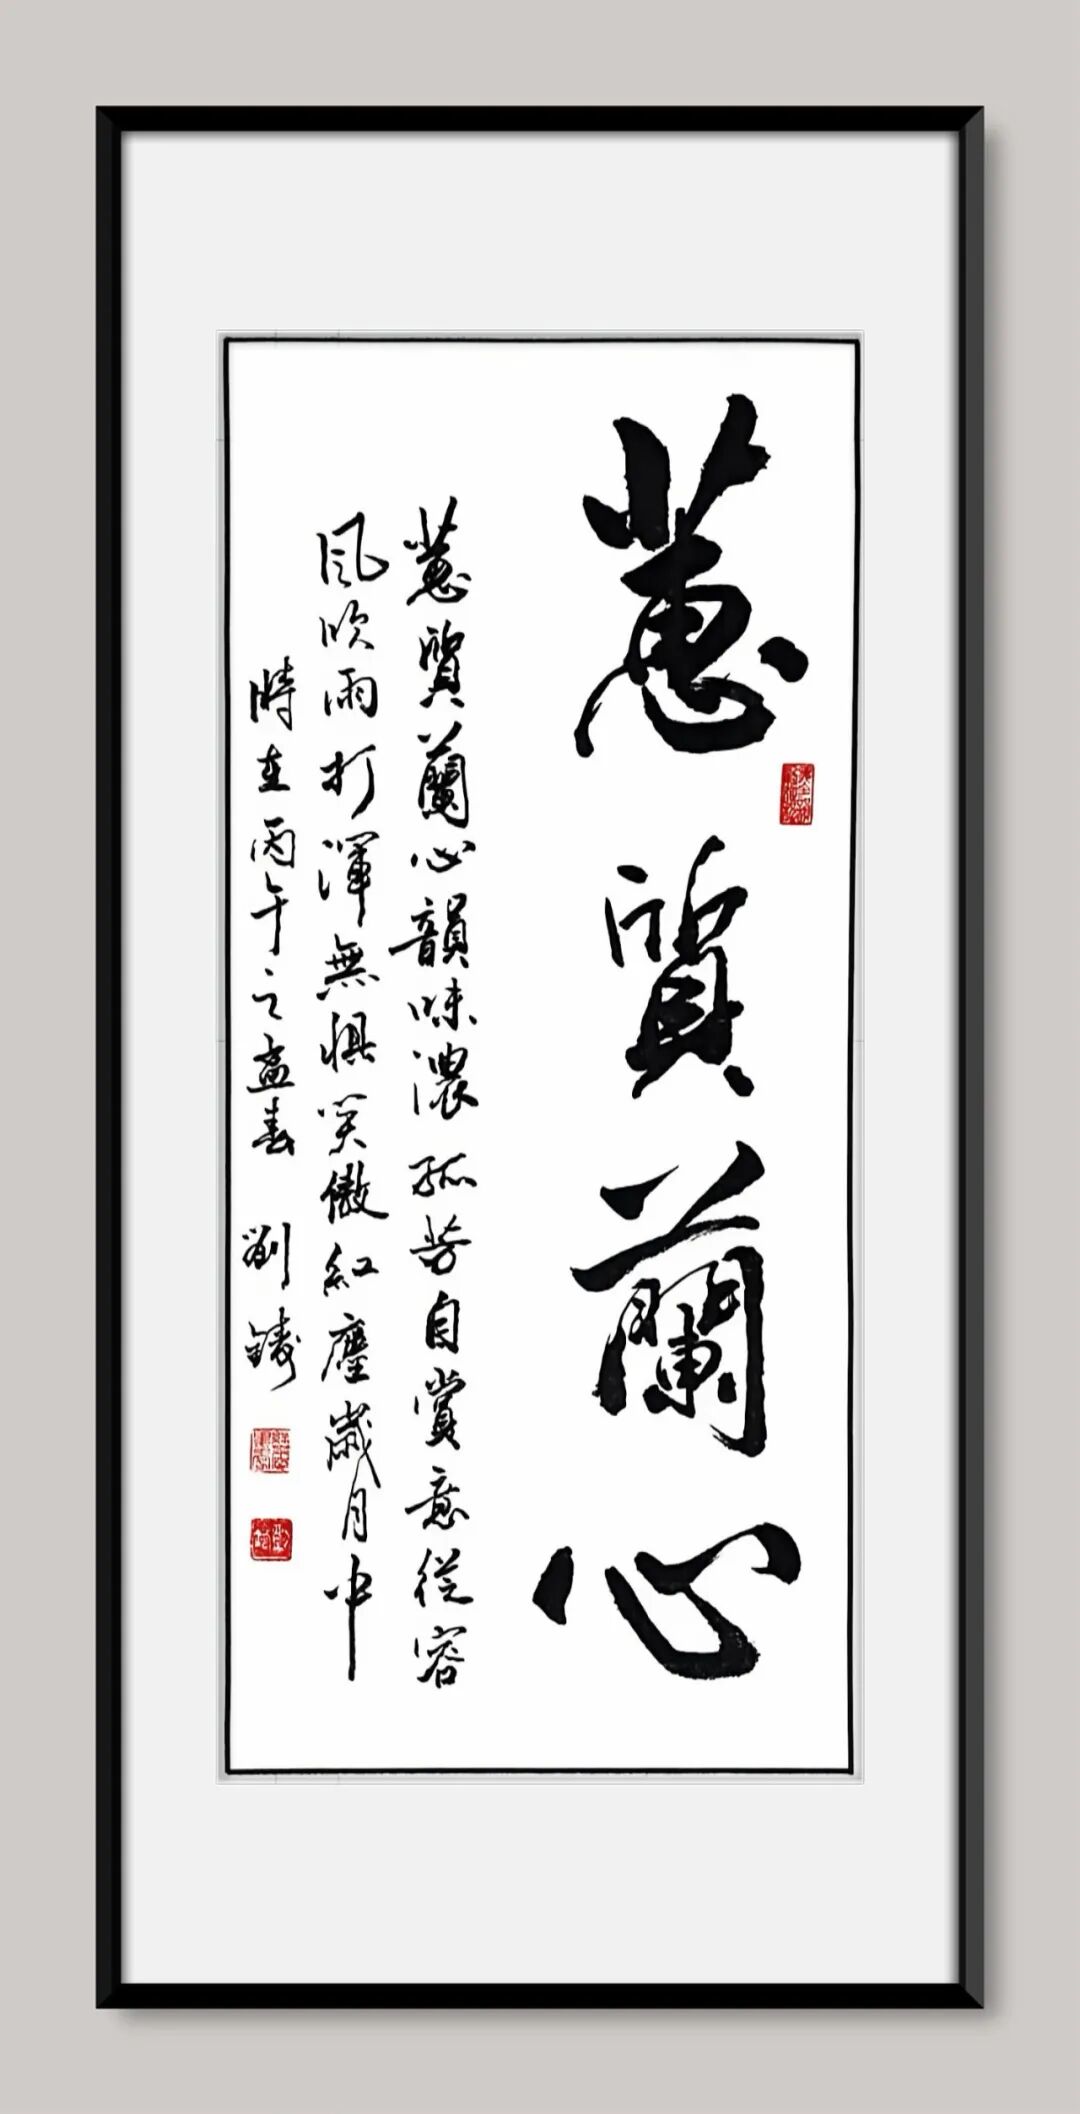 蕙質蘭心
蕙質蘭心韻味濃孤芳自賞意從容
風吹雨打渾無懼笑傲紅塵歲月中
時在丙午之孟春 劉鑄